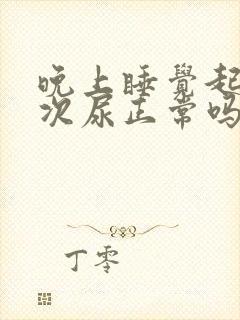 晚上睡覺起
次尿正常吗
丁零